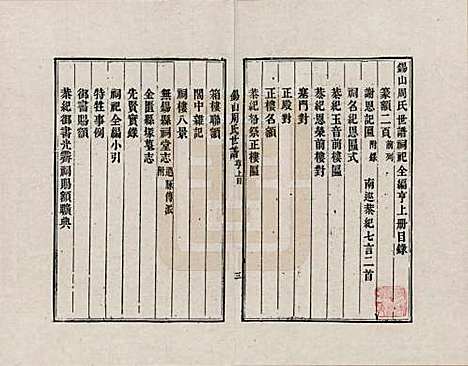 錫山周氏世譜祠祀全編亨上冊目錄
篆額二頁 前列
謝恩記匾 附錄 南巡恭紀七言二首
祠名紀恩匾式
恭紀玉音前樓對
恭紀恩榮前樓匾
塞門對
正殿對
正樓名額
恭紀格祭正樓匾
錫山周氏世譜 亨上目 三
箱樓聯額
閣中雜記
祠樓八景
無錫縣祠堂志
金匱縣塚墓志
先賢實錄
祠祀全編小引
特牲事例
御書賜額
恭紀御書光霽祠賜額曠典